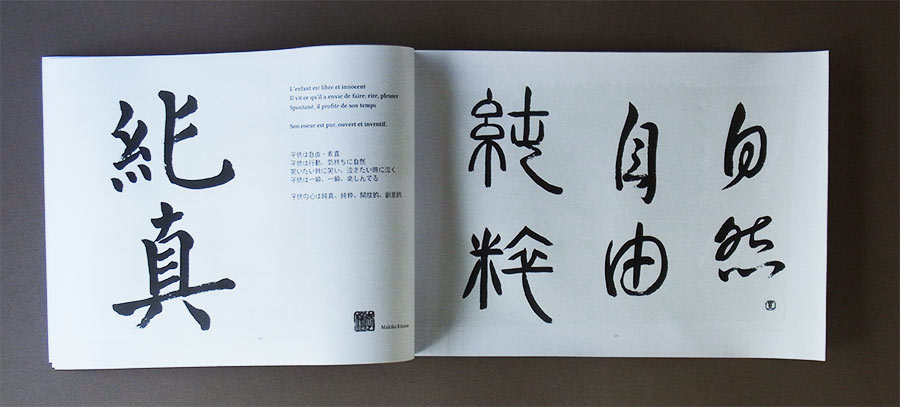 純
真
L'enfant est libre et innocent
Il vit ce qu'il a envie de faire; rire, pleurer
Spontané, il profite de son temps
Son coeur est pur, ouvert et inventif.
子供は自由・素直
子供は行動、気持ちに自然
笑いたい時に笑い、泣きたい時に泣く
子供は一瞬、一瞬、楽しんでる
子供の心は純真、純粋、開放的、創造的
純
粹
自
由
自
然